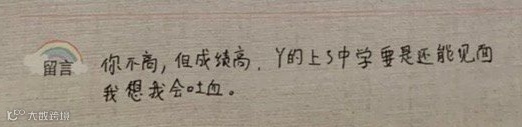 留言
你不高，但成绩高．Y的上S中学要是还能见面
我想我会吐血。
大成跨境